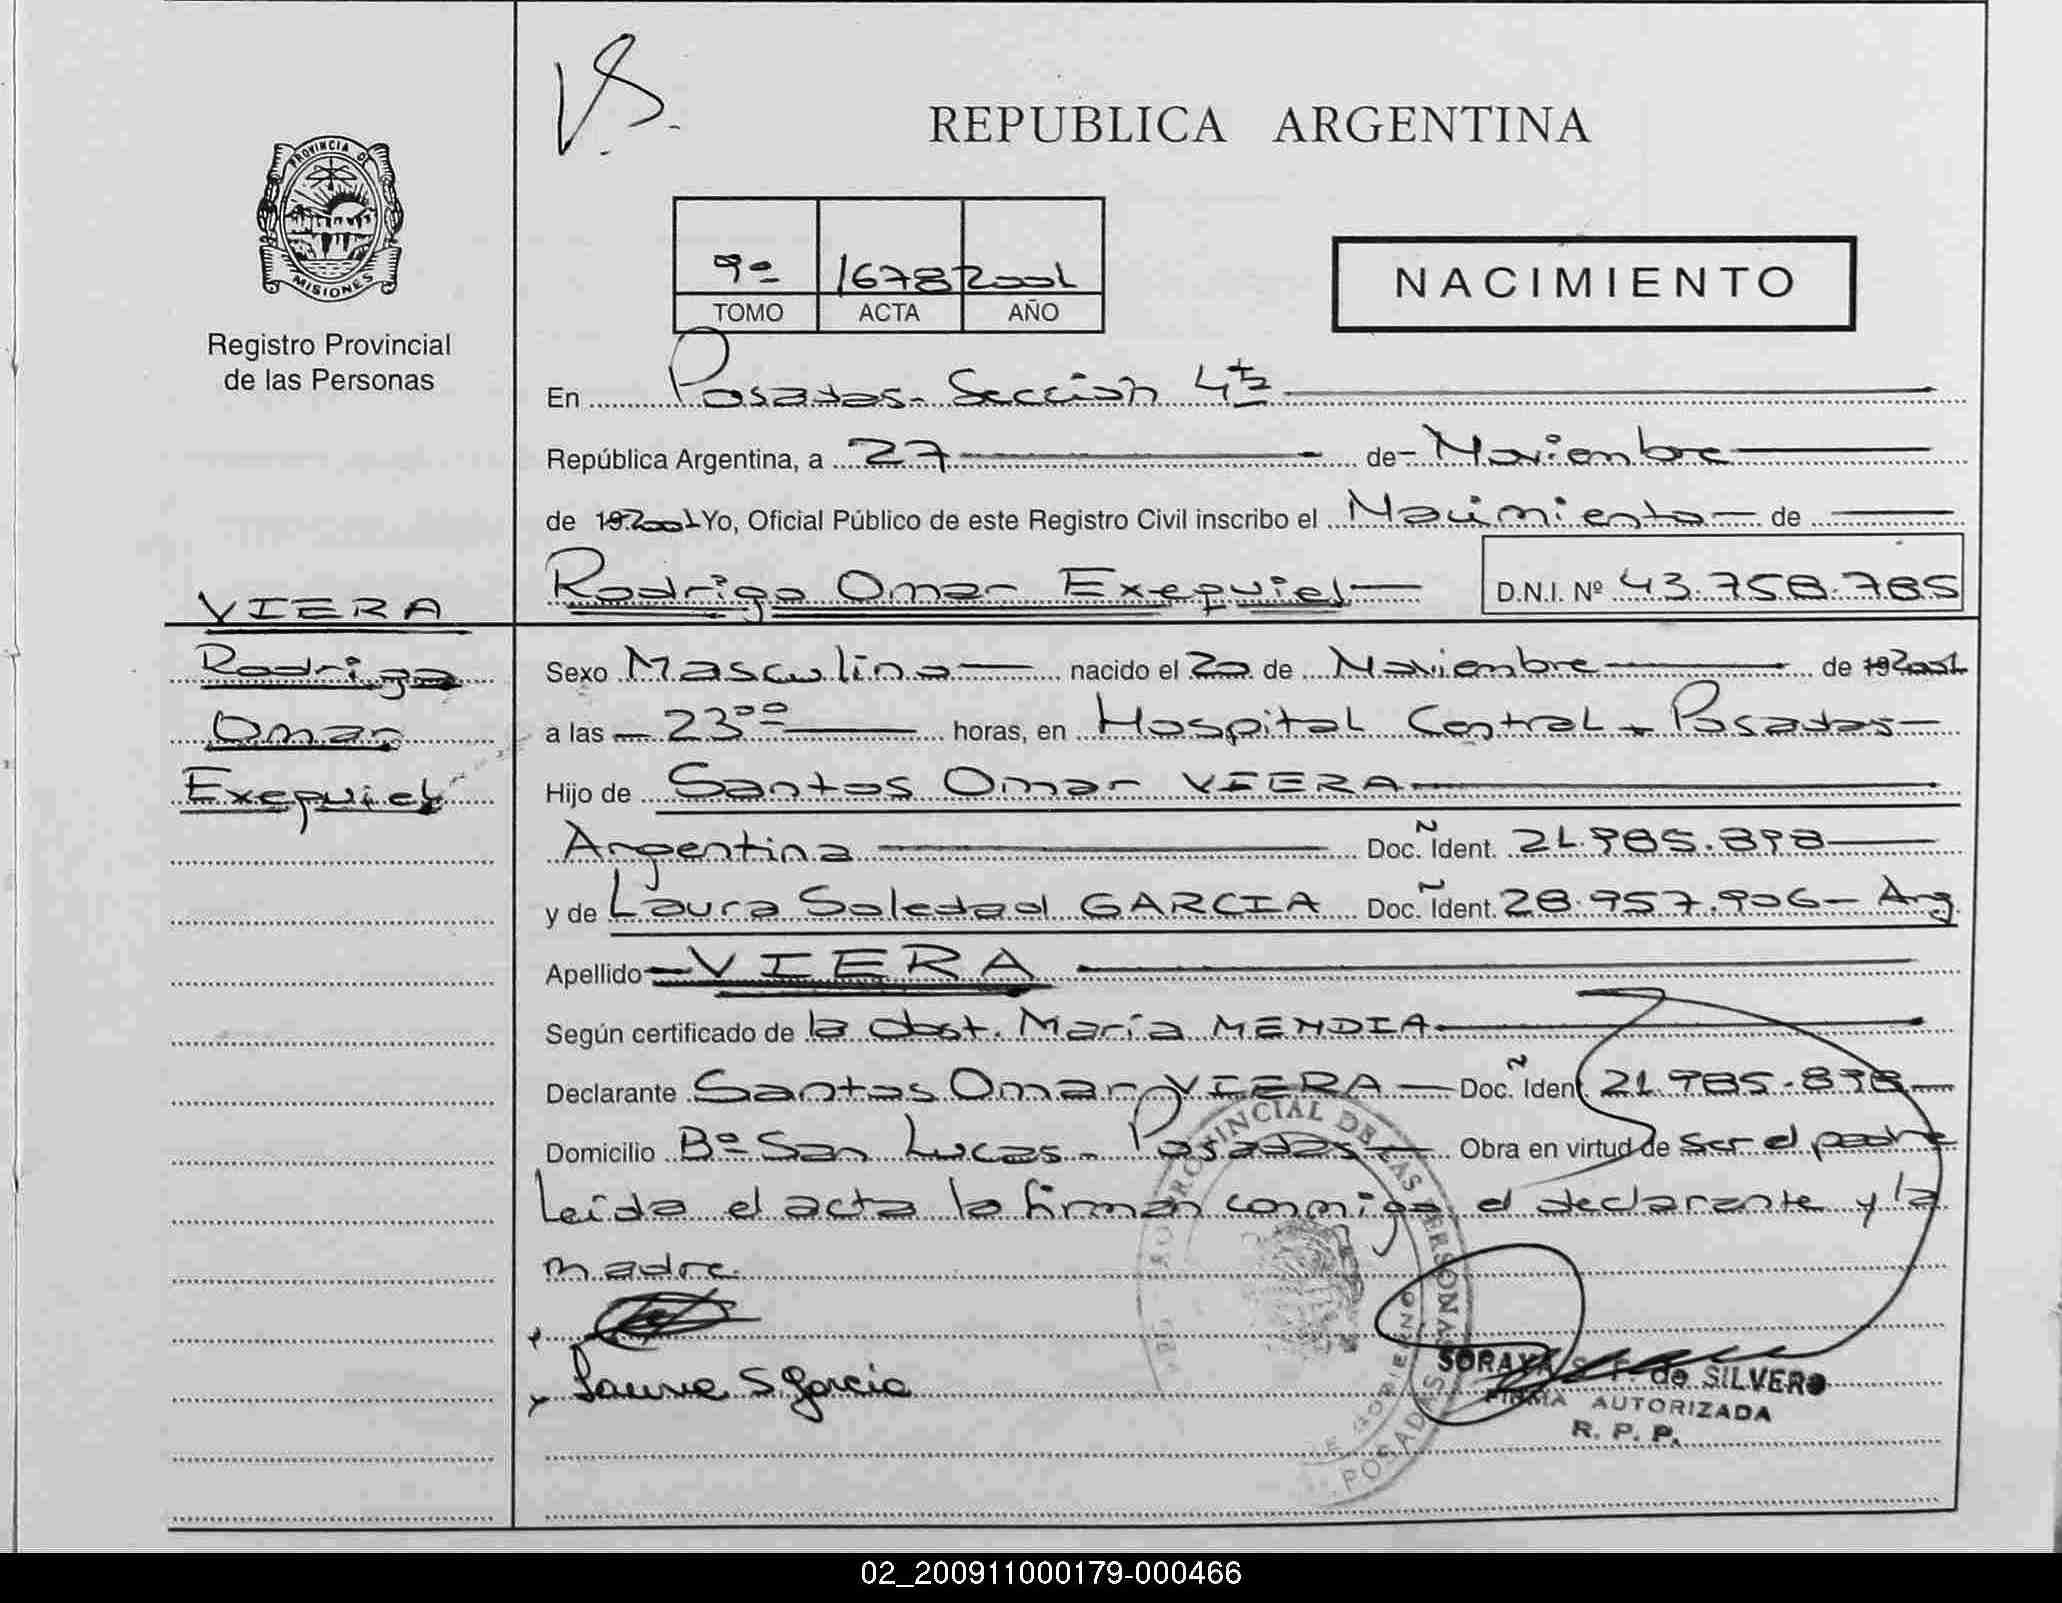 V.S.
REPUBLICA ARGENTINA
PROVINCIA DE
MISIONES
Registro Provincial
de las Personas
9º 1678 2001
TOMO ACTA AÑO
NACIMIENTO
En Posadas - Sección 4ta
República Argentina, a 27 de Noviembre
de 19 2001 Yo, Oficial Público de este Registro Civil inscribo el Nacimiento de
Rodrigo Omar Exequiel D.N.I. Nº 43.758.785
VIERA
Rodrigo
Omar
Exequiel
Sexo Masculino nacido el 20 de Noviembre de 19 2001
a las 23ºº horas, en Hospital Central - Posadas
Hijo de Santos Omar VIERA
Argentina Doc. Ñ Ident. 21.985.898
y de Laura Soledad GARCIA Doc. Ñ Ident. 28.957.906 - Arg.
Apellido VIERA
Según certificado de la Obst. María MENDIA
Declarante Santos Omar VIERA Doc. Ñ Ident. 21.985.898
Domicilio Bº San Lucas - Posadas Obra en virtud de ser el padre
Leída el acta la firman conmigo el declarante y la
madre.
Laura S Garcia
REGISTRO PROVINCIAL DE LAS PERSONAS
POSADAS
SORAYA S. F. de SILVERO
FIRMA AUTORIZADA
R. P. P.
02_200911000179-000466